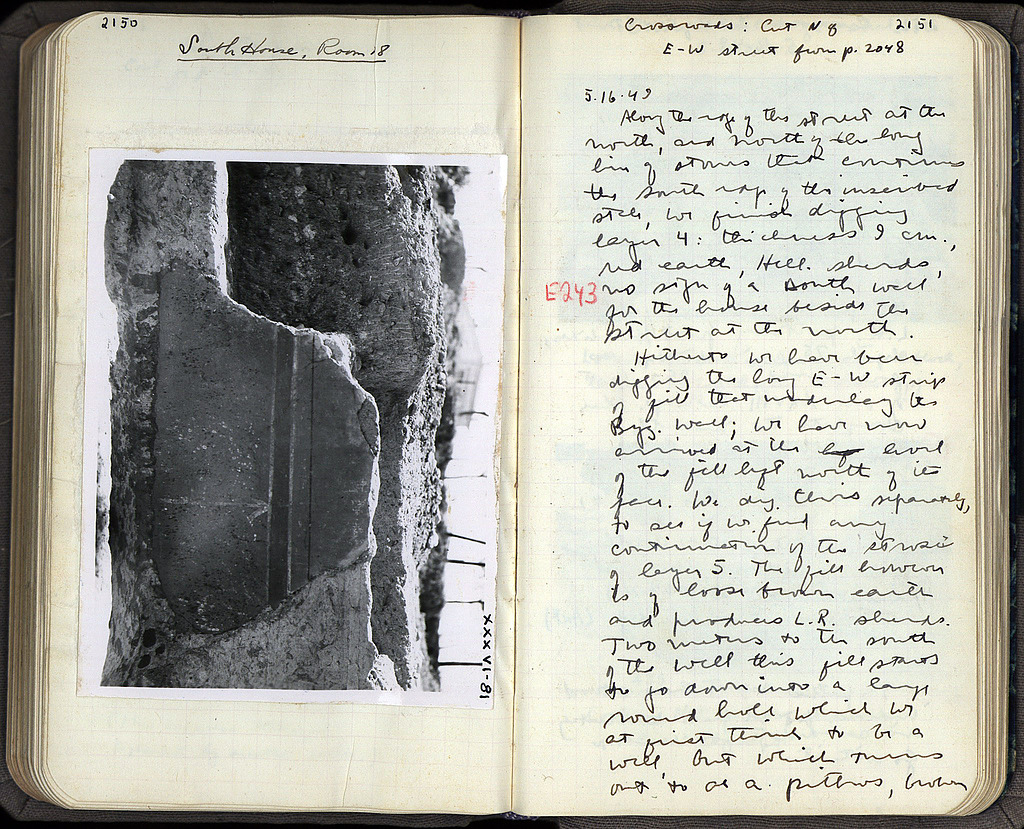 2150
South House, Room 18
XXXVI-81
Crossroads: Cut N 8
2151
E-W street from p. 2048
5.16.49
Along the edge of the street at the
north, and north of the long
line of stones that continues
the south edge of the inscribed
stele, we finish digging
layer 4: thickness 9 cm.,
red earth, Hell. sherds,
E243
no sign of a south wall
for the house beside the
street at the north.
Hitherto we have been
digging the long E-W strip
of fill that underlay the
Byz. wall; we have now
arrived at the level
of the fill left north of its
face. We dig this separately,
to see if we find any
continuation of the strosis
of layer 5. The fill however
is of loose brown earth
and produces L.R. sherds.
Two meters to the south
of the wall this fill starts
to go down into a large
round hole which we
at first think to be a
well, but which turns
out to be a pithos, broken